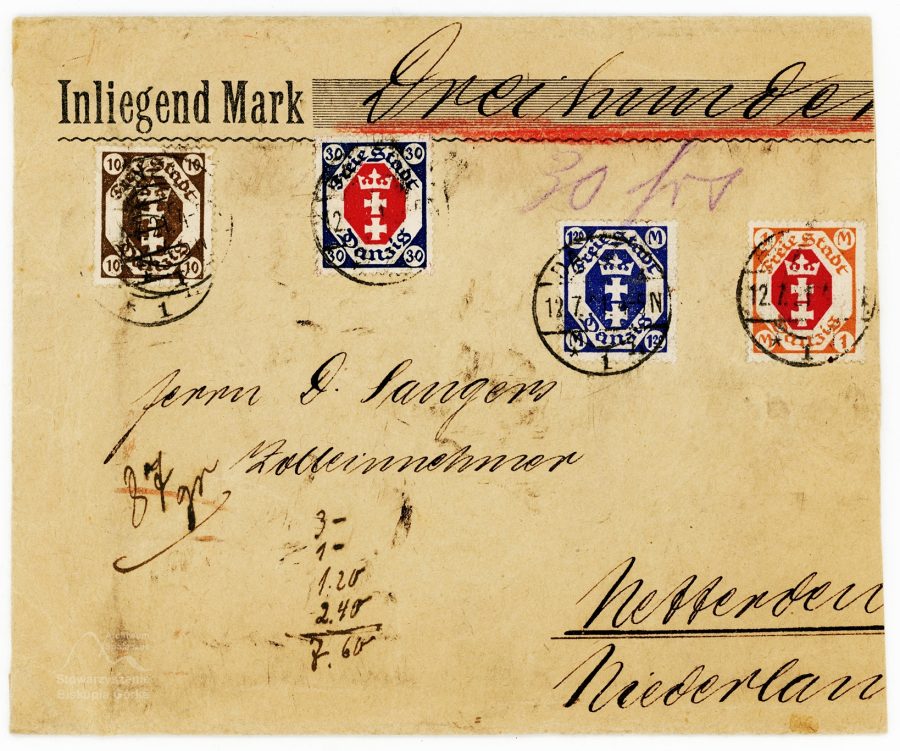 Inliegend Mark Dreihunder
10 10
Freie Stadt
10 10
30 30
Freie Stadt
Danzig
30 30
30 frs
1.20 M
Freie Stadt
Danzig
M 1.20
12.7.
N
1
M
Freie Stadt
Danzig
M 1
12.7.
1
1
Herrn D. Sangers
Zolleinnehmer
87 gr
3-
1-
1.20
2.40
7.60
Netterden
Niederlan
Stowarzyszenie
Biskupia Górka